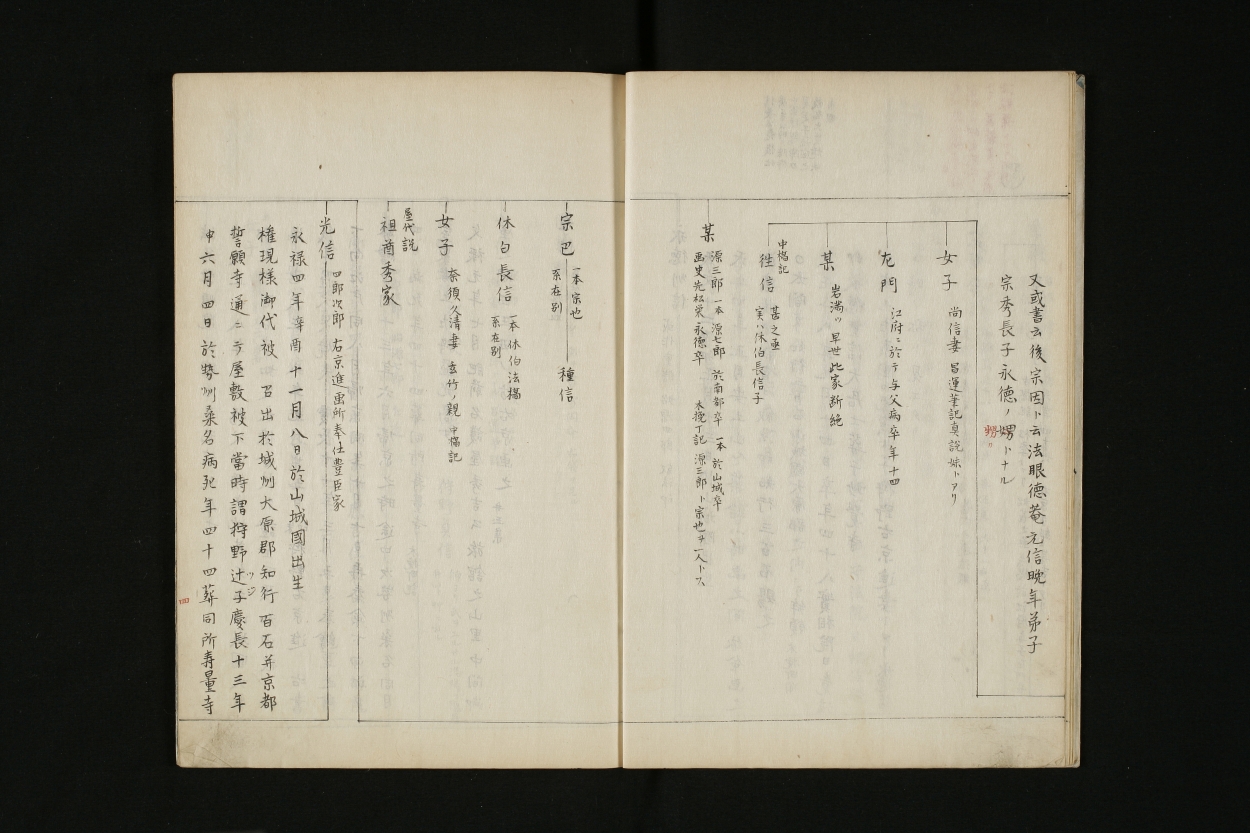 又或書云後宗因ト云法眼德菴元信晩年弟子
宗秀長子永德ノ甥トナル
甥カ
女子
尚信妻 昌運筆記真説妹トアリ
左門
江府ニ於テ与父病卒年十四
某
岩満カ 早世此家断絶
中橋記
徃信
甚之丞
実ハ休伯長信子
某
源三郎一本源七郎 於南都卒 一本於山城卒
画史先松栄永德卒 木挽丁記 源三郎ト宗也ヲ一人トス
宗巴
一本宗也
系在別
種信
休白長信
一本休伯法橋
系在別
女子
奈須久清妻 玄竹ノ親 中橋記
屋代説
祖酉秀家
光信
四郎次郎 右京進画所奉仕豊臣家
永禄四年辛酉十一月八日於山城國出生
権現様御代被 召出於城州大原郡知行百石并京都
誓願寺通ニテ屋敷被下當時謂狩野辻子慶長十三年
ツジ
申六月四日於勢州桑名病死年四十四葬同所寿量寺
四